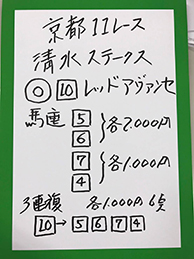 京都11レース
清水ステークス
◎ 10 レッドアヴァンセ
馬連 5
6
各2,000円
7
4
各1,000円
3連複 各1,000円 6点
10→5 6 7 4